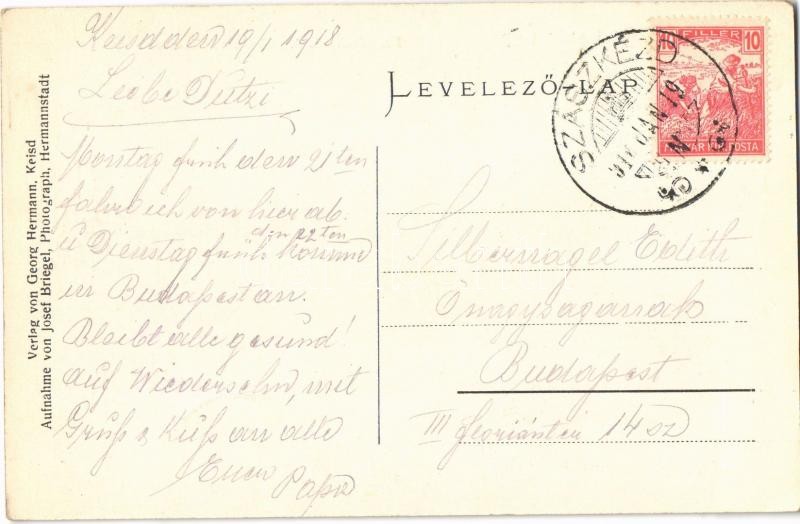 Keisd den 19/1 1918
Liebe Ditzi
Montag früh den 21ten
fahre ich von hier ab.
u Dienstag früh den 22ten komme
in Budapest an.
Bleibt alle gesund!
auf Wiedersehn, mit
Gruß & Kuß an alle
Euer
Papa
Verlag von Georg Hermann, Keisd
Aufnahme von Josef Briegel, Photograph, Hermannstadt
LEVELEZŐ-LAP
10 FILLER 10
MAGYAR KIR. POSTA
SZÁSZKÉZD
JAN 19
Silbernagel Edith
Őnagyságának
Budapest
III Floriántér 14 sz